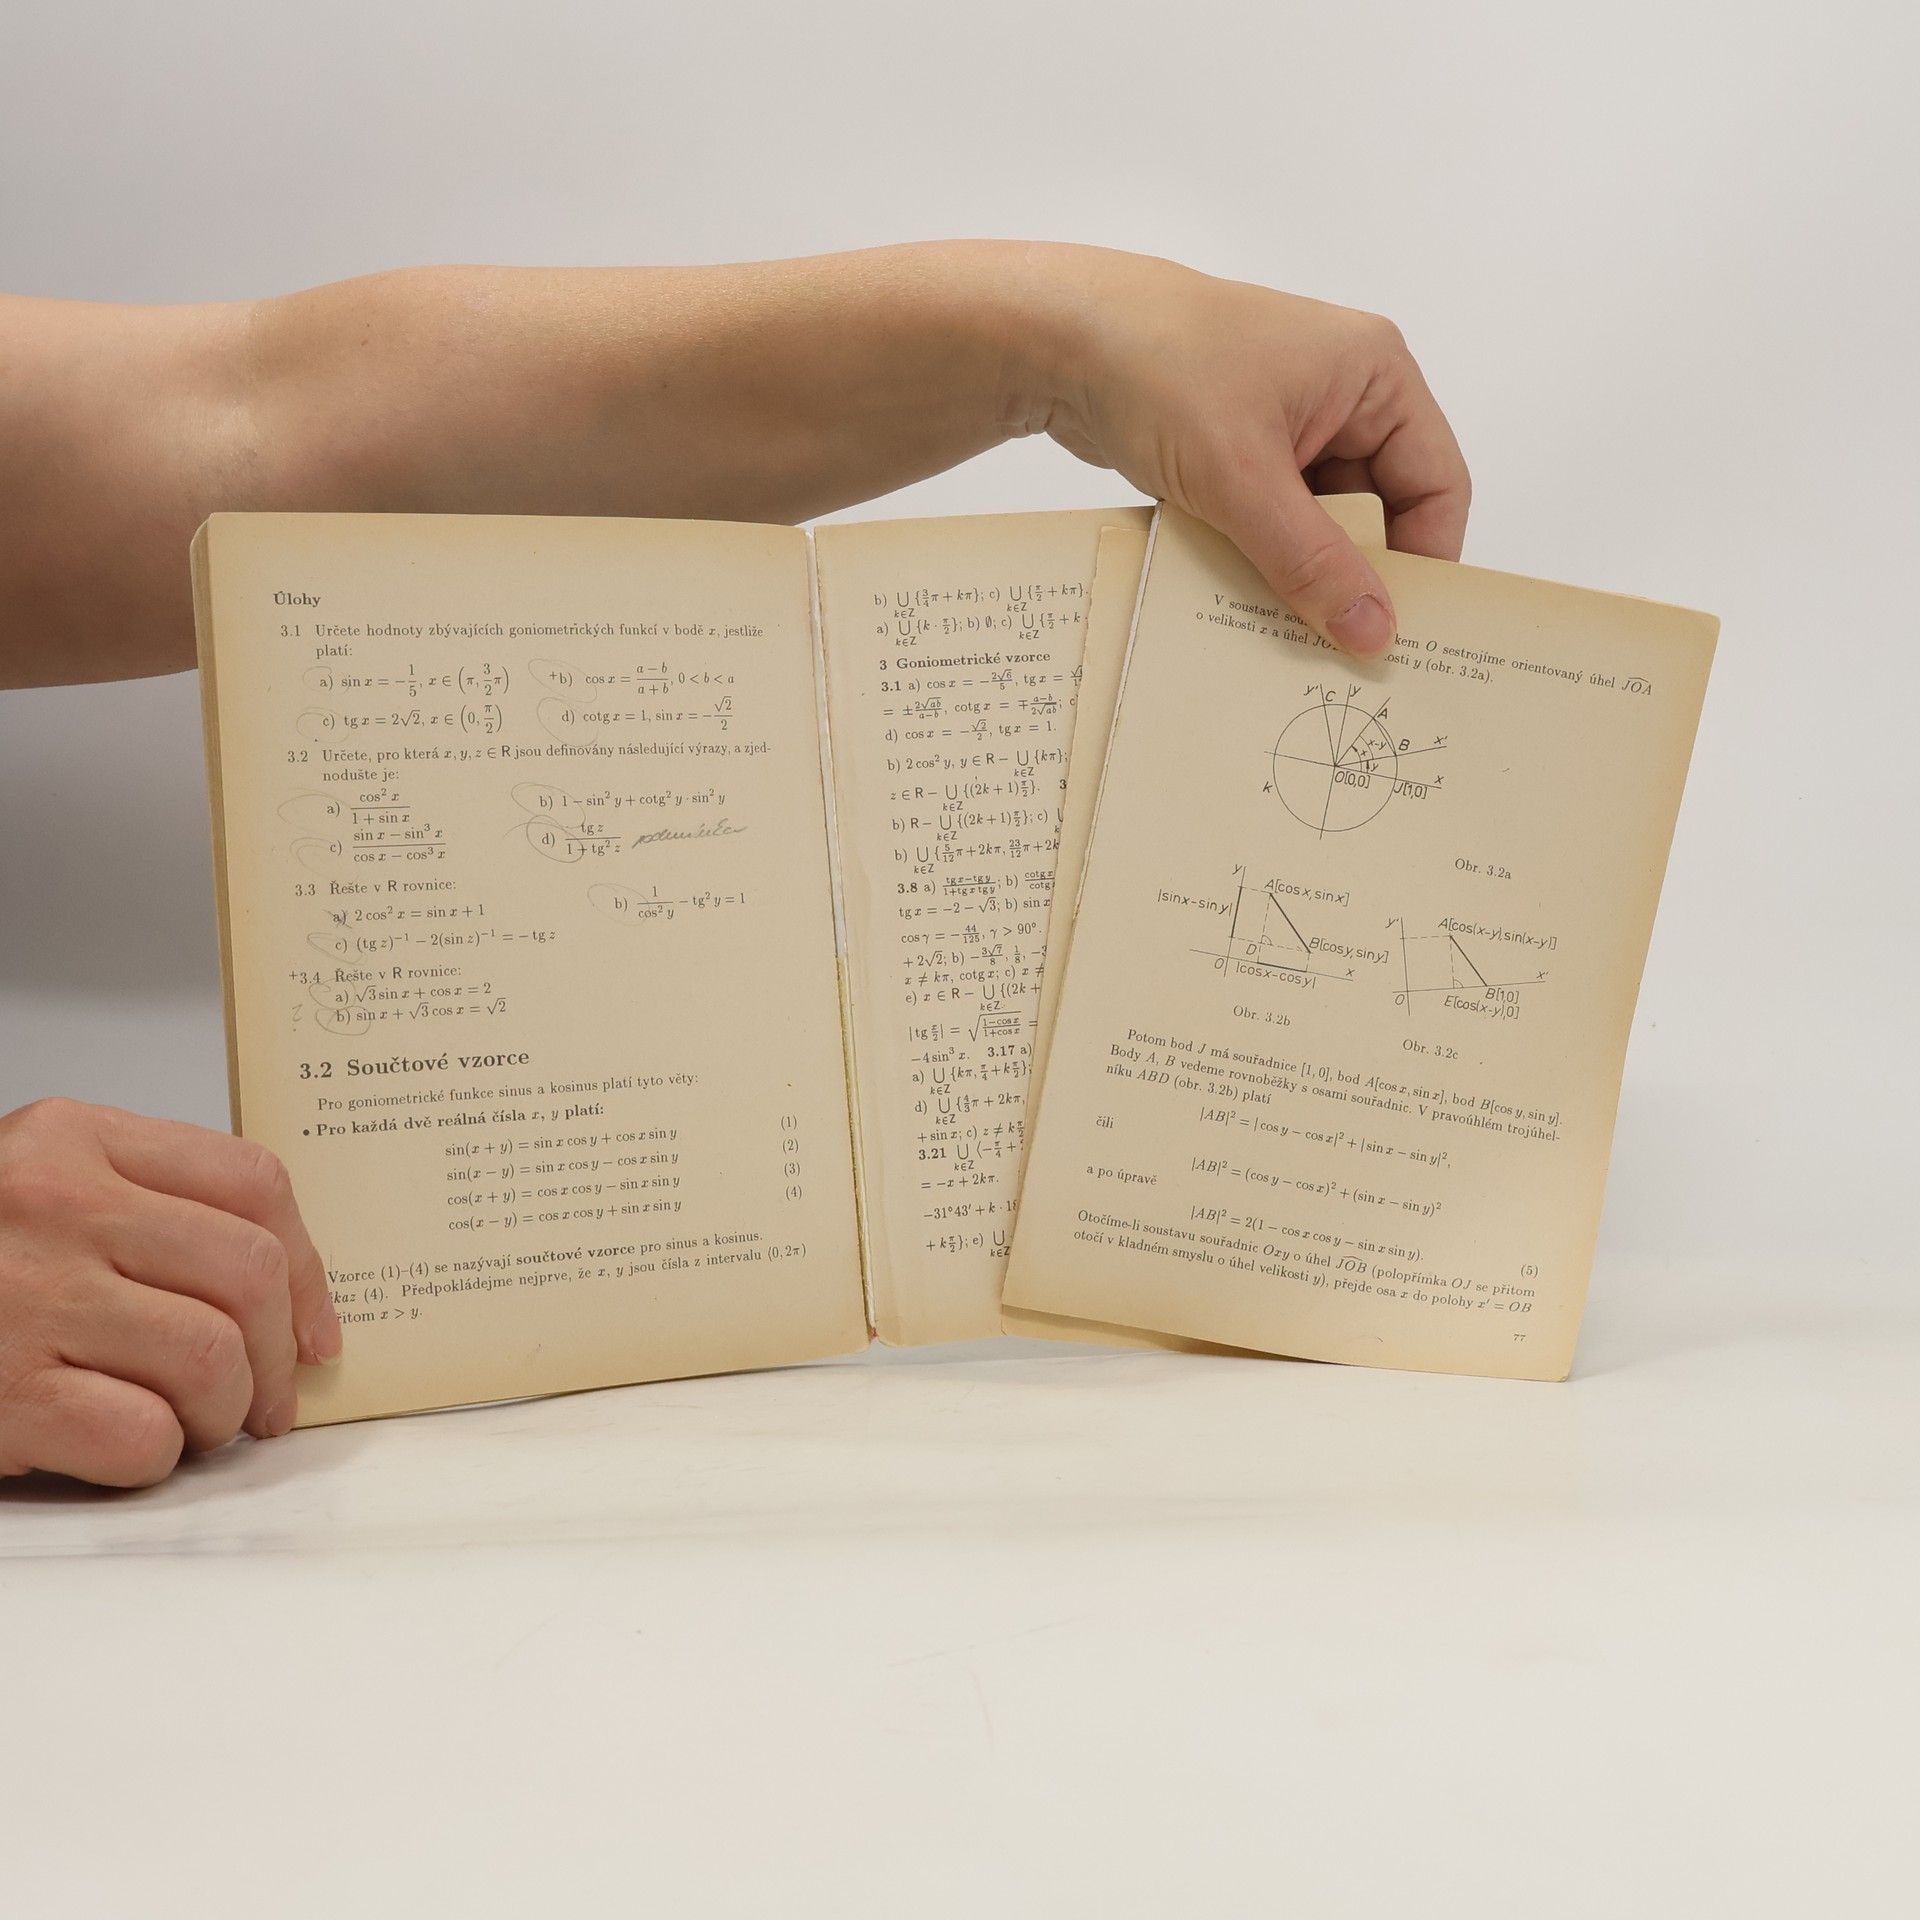 Úlohy
3.1 Určete hodnoty zbývajících goniometrických funkcí v bodě x, jestliže
platí:
a) sin x = −1/5, x ∈ (π, 3/2 π) +b) cos x = (a − b)/(a + b), 0 < b < a
c) tg x = 2√2, x ∈ (0, π/2) d) cotg x = 1, sin x = −√2/2
3.2 Určete, pro která x, y, z ∈ R jsou definovány následující výrazy, a zjed-
nodušte je:
a) cos² x/(1 + sin x) b) 1 − sin² y + cotg² y · sin² y
c) (sin x − sin³ x)/(cos x − cos³ x) d) tg z/(1 + tg² z)
3.3 Řešte v R rovnice:
a) 2 cos² x = sin x + 1 b) 1/cos² y − tg² y = 1
c) (tg z)⁻¹ − 2(sin z)⁻¹ = − tg z
+3.4 Řešte v R rovnice:
a) √3 sin x + cos x = 2
? b) sin x + √3 cos x = √2
3.2 Součtové vzorce
Pro goniometrické funkce sinus a kosinus platí tyto věty:
• Pro každá dvě reálná čísla x, y platí:
sin(x + y) = sin x cos y + cos x sin y (1)
sin(x − y) = sin x cos y − cos x sin y (2)
cos(x + y) = cos x cos y − sin x sin y (3)
cos(x − y) = cos x cos y + sin x sin y (4)
Vzorce (1)–(4) se nazývají součtové vzorce pro sinus a kosinus.
kaz (4). Předpokládejme nejprve, že x, y jsou čísla z intervalu ⟨0, 2π)
řitom x > y.
b) ⋃ {3/4 π + kπ}; c) ⋃ {π/2 + kπ}.
k∈Z k∈Z
a) ⋃ {k · π/2}; b) ∅; c) ⋃ {π/2 + k
k∈Z k∈Z
3 Goniometrické vzorce
3.1 a) cos x = −2√6/5, tg x =
= ±2√ab/(a−b), cotg x = ∓(a−b)/(2√ab); c
d) cos x = −√2/2, tg x = 1.
b) 2 cos² y, y ∈ R − ⋃ {kπ};
k∈Z
z ∈ R − ⋃ {(2k + 1)π/2}. 3
k∈Z
b) R − ⋃ {(2k + 1)π/2}; c)
k∈Z
b) ⋃ {5/12 π + 2kπ, 23/12 π + 2k
k∈Z
3.8 a) (tg x−tg y)/(1+tg x tg y); b)
tg x = −2 − √3; b) sin x
cos γ = −44/125, γ > 90°.
+ 2√2; b) −3√7/8, 1/8,
x ≠ kπ, cotg x; c) x ≠
e) x ∈ R − ⋃ {(2k +
k∈Z
|tg x/2| = √((1−cos x)/(1+cos x)) =
−4 sin³ x. 3.17 a)
a) ⋃ {kπ, π/4 + kπ/2};
k∈Z
d) ⋃ {4/3 π + 2kπ,
k∈Z
+ sin x; c) z ≠ kπ/2
3.21 ⋃ ⟨−π/4 +
k∈Z
= −x + 2kπ.
−31°43′ + k · 18
+ kπ/2}; e) ⋃
k∈Z
V soustavě sou kem O sestrojíme orientovaný úhel JOA
o velikosti x a úhel JO osti y (obr. 3.2a).
y′ C y
A
x−y B x′
x y
O[0,0] J[1,0] x
K
Obr. 3.2a
y
A[cos x, sin x]
|sin x−sin y|
B[cos y, sin y]
D
O |cos x−cos y| x
Obr. 3.2b
y′
A[cos(x−y), sin(x−y)]
x′
O B[1,0]
E[cos(x−y),0]
Obr. 3.2c
Potom bod J má souřadnice [1, 0], bod A[cos x, sin x], bod B[cos y, sin y].
Body A, B vedeme rovnoběžky s osami souřadnic. V pravoúhlém trojúhel-
níku ABD (obr. 3.2b) platí
|AB|² = | cos y − cos x|² + | sin x − sin y|²,
čili
|AB|² = (cos y − cos x)² + (sin x − sin y)²
a po úpravě
|AB|² = 2(1 − cos x cos y − sin x sin y). (5)
Otočíme-li soustavu souřadnic Oxy o úhel JOB (polopřímka OJ se přitom
otočí v kladném smyslu o úhel velikosti y), přejde osa x do polohy x′ = OB
77